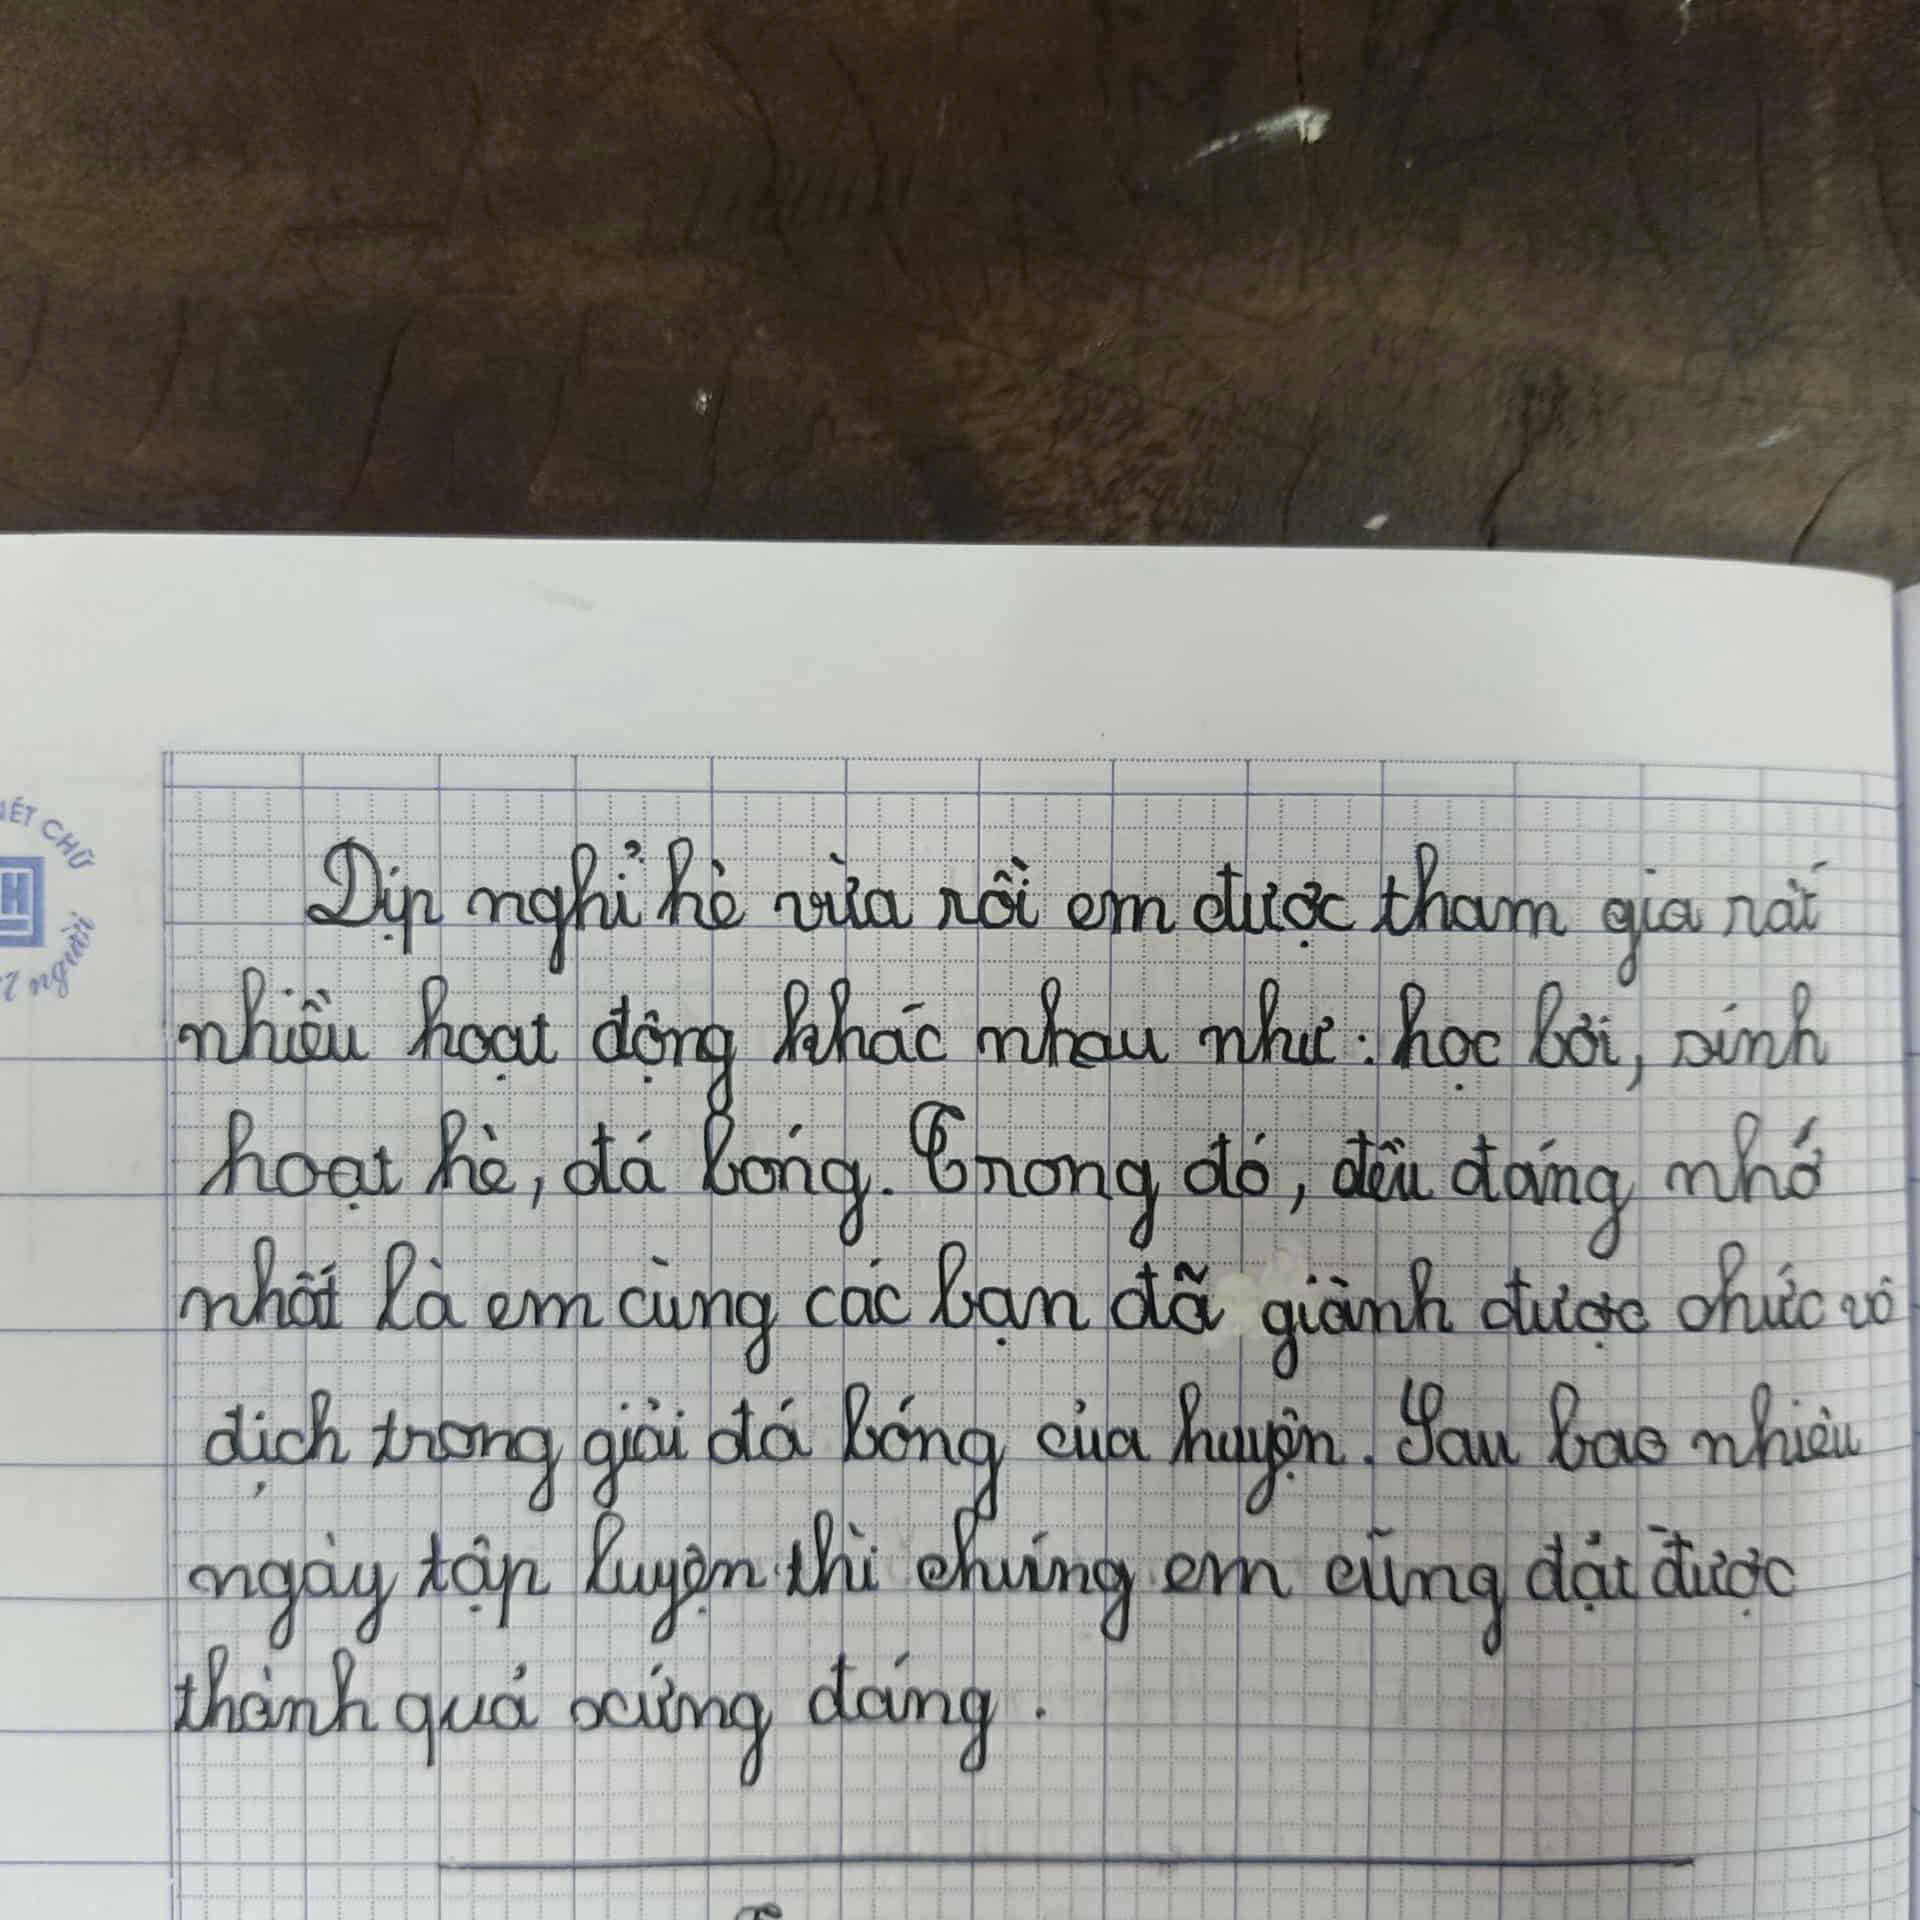 Dịp nghỉ hè vừa rồi em được tham gia rất
nhiều hoạt động khác nhau như: học bơi, sinh
hoạt hè, đá bóng. Trong đó, đều đáng nhớ
nhất là em cùng các bạn đã giành được chức vô
địch trong giải đá bóng của huyện. Sau bao nhiêu
ngày tập luyện thì chúng em cũng đạt được
thành quả xứng đáng.
ÉT CHỮ
H
người